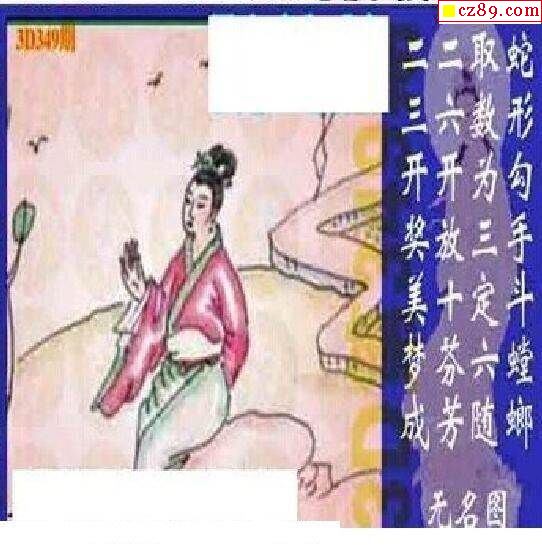 cz89.com
3D349期
蛇形勾手斗螳螂
取数为三定六随
二六开放十芬芳
二三开奖美梦成
无名图